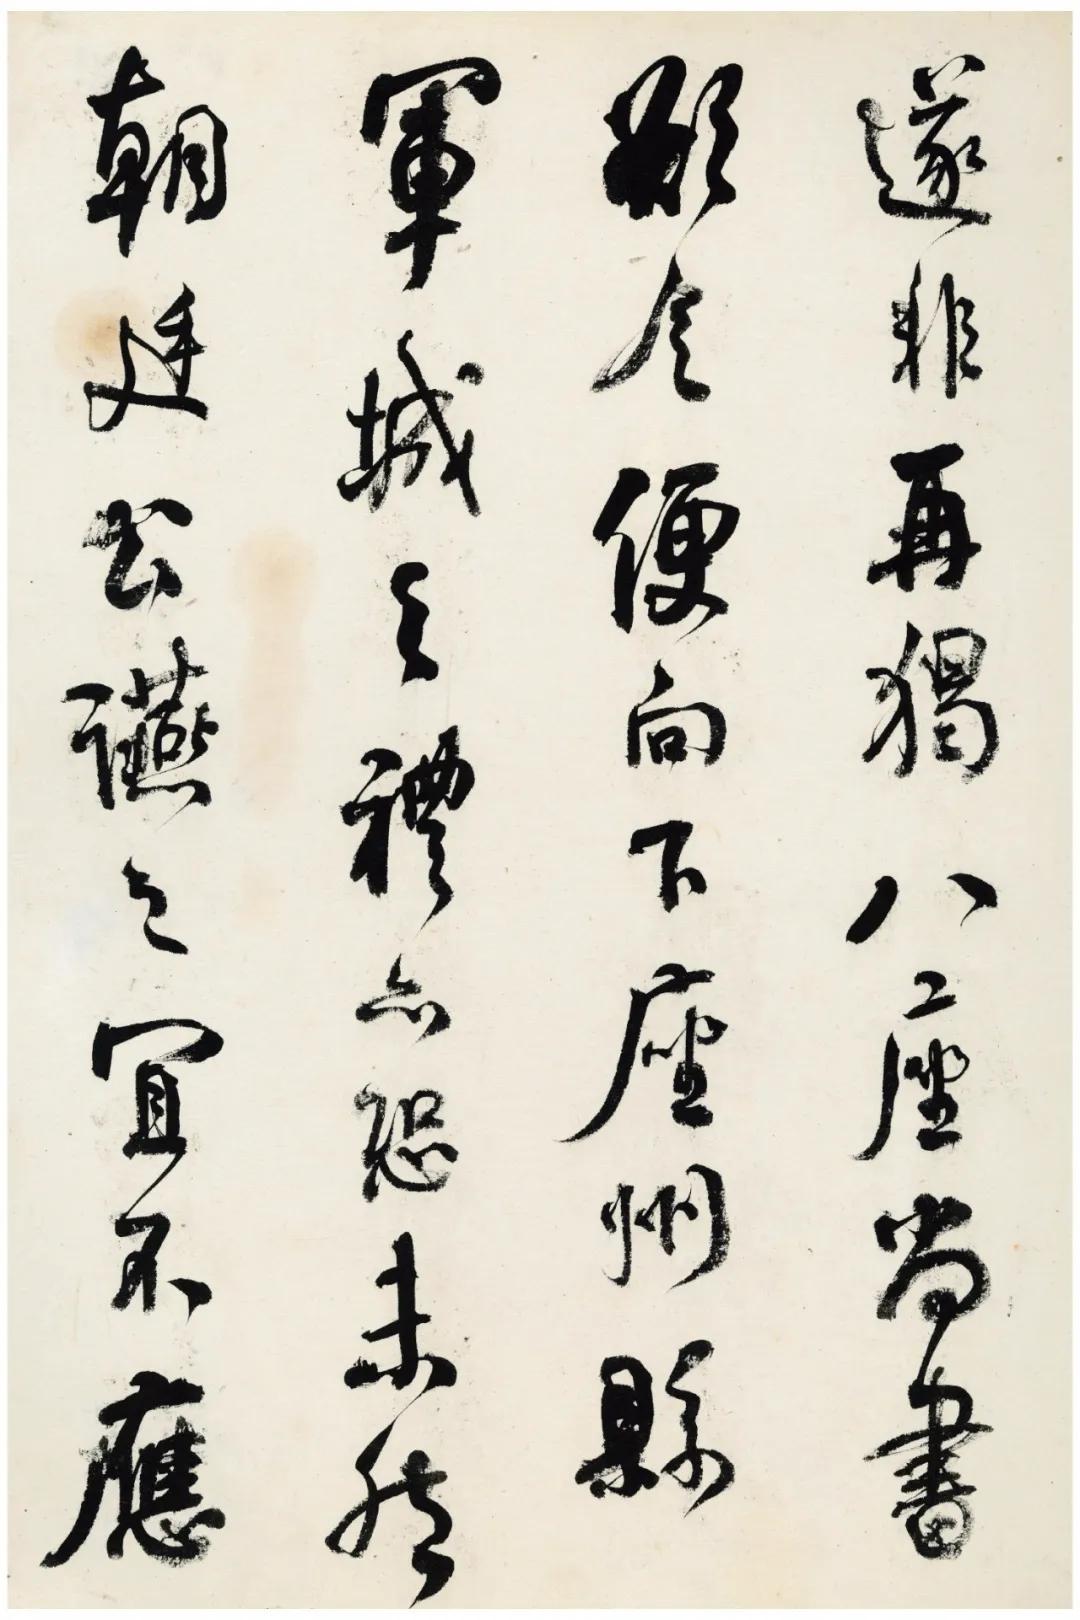 遂非再猲八座尚書
欲令便向下座州縣
軍城之禮亦恐未然
朝廷公讌之宜不應